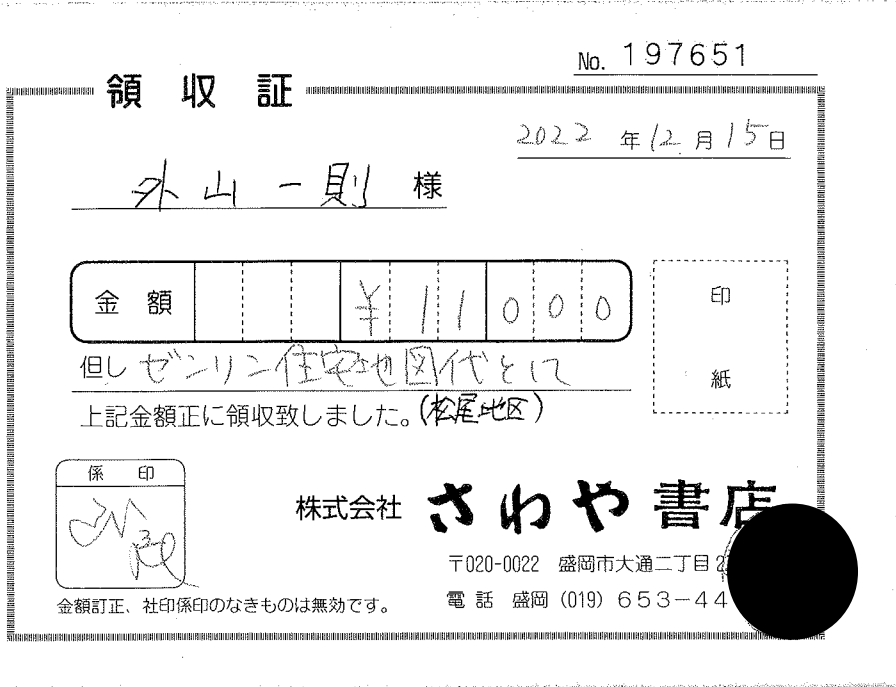 No. 197651
領収証
2022年12月15日
外山一則 様
金額 ¥11000
印紙
但し ゼンリン住宅地図代として
上記金額正に領収致しました。(松尾地区)
係印
株式会社 さわや書店
〒020-0022 盛岡市大通二丁目2
電話 盛岡(019)653-44
金額訂正、社印係印のなきものは無効です。